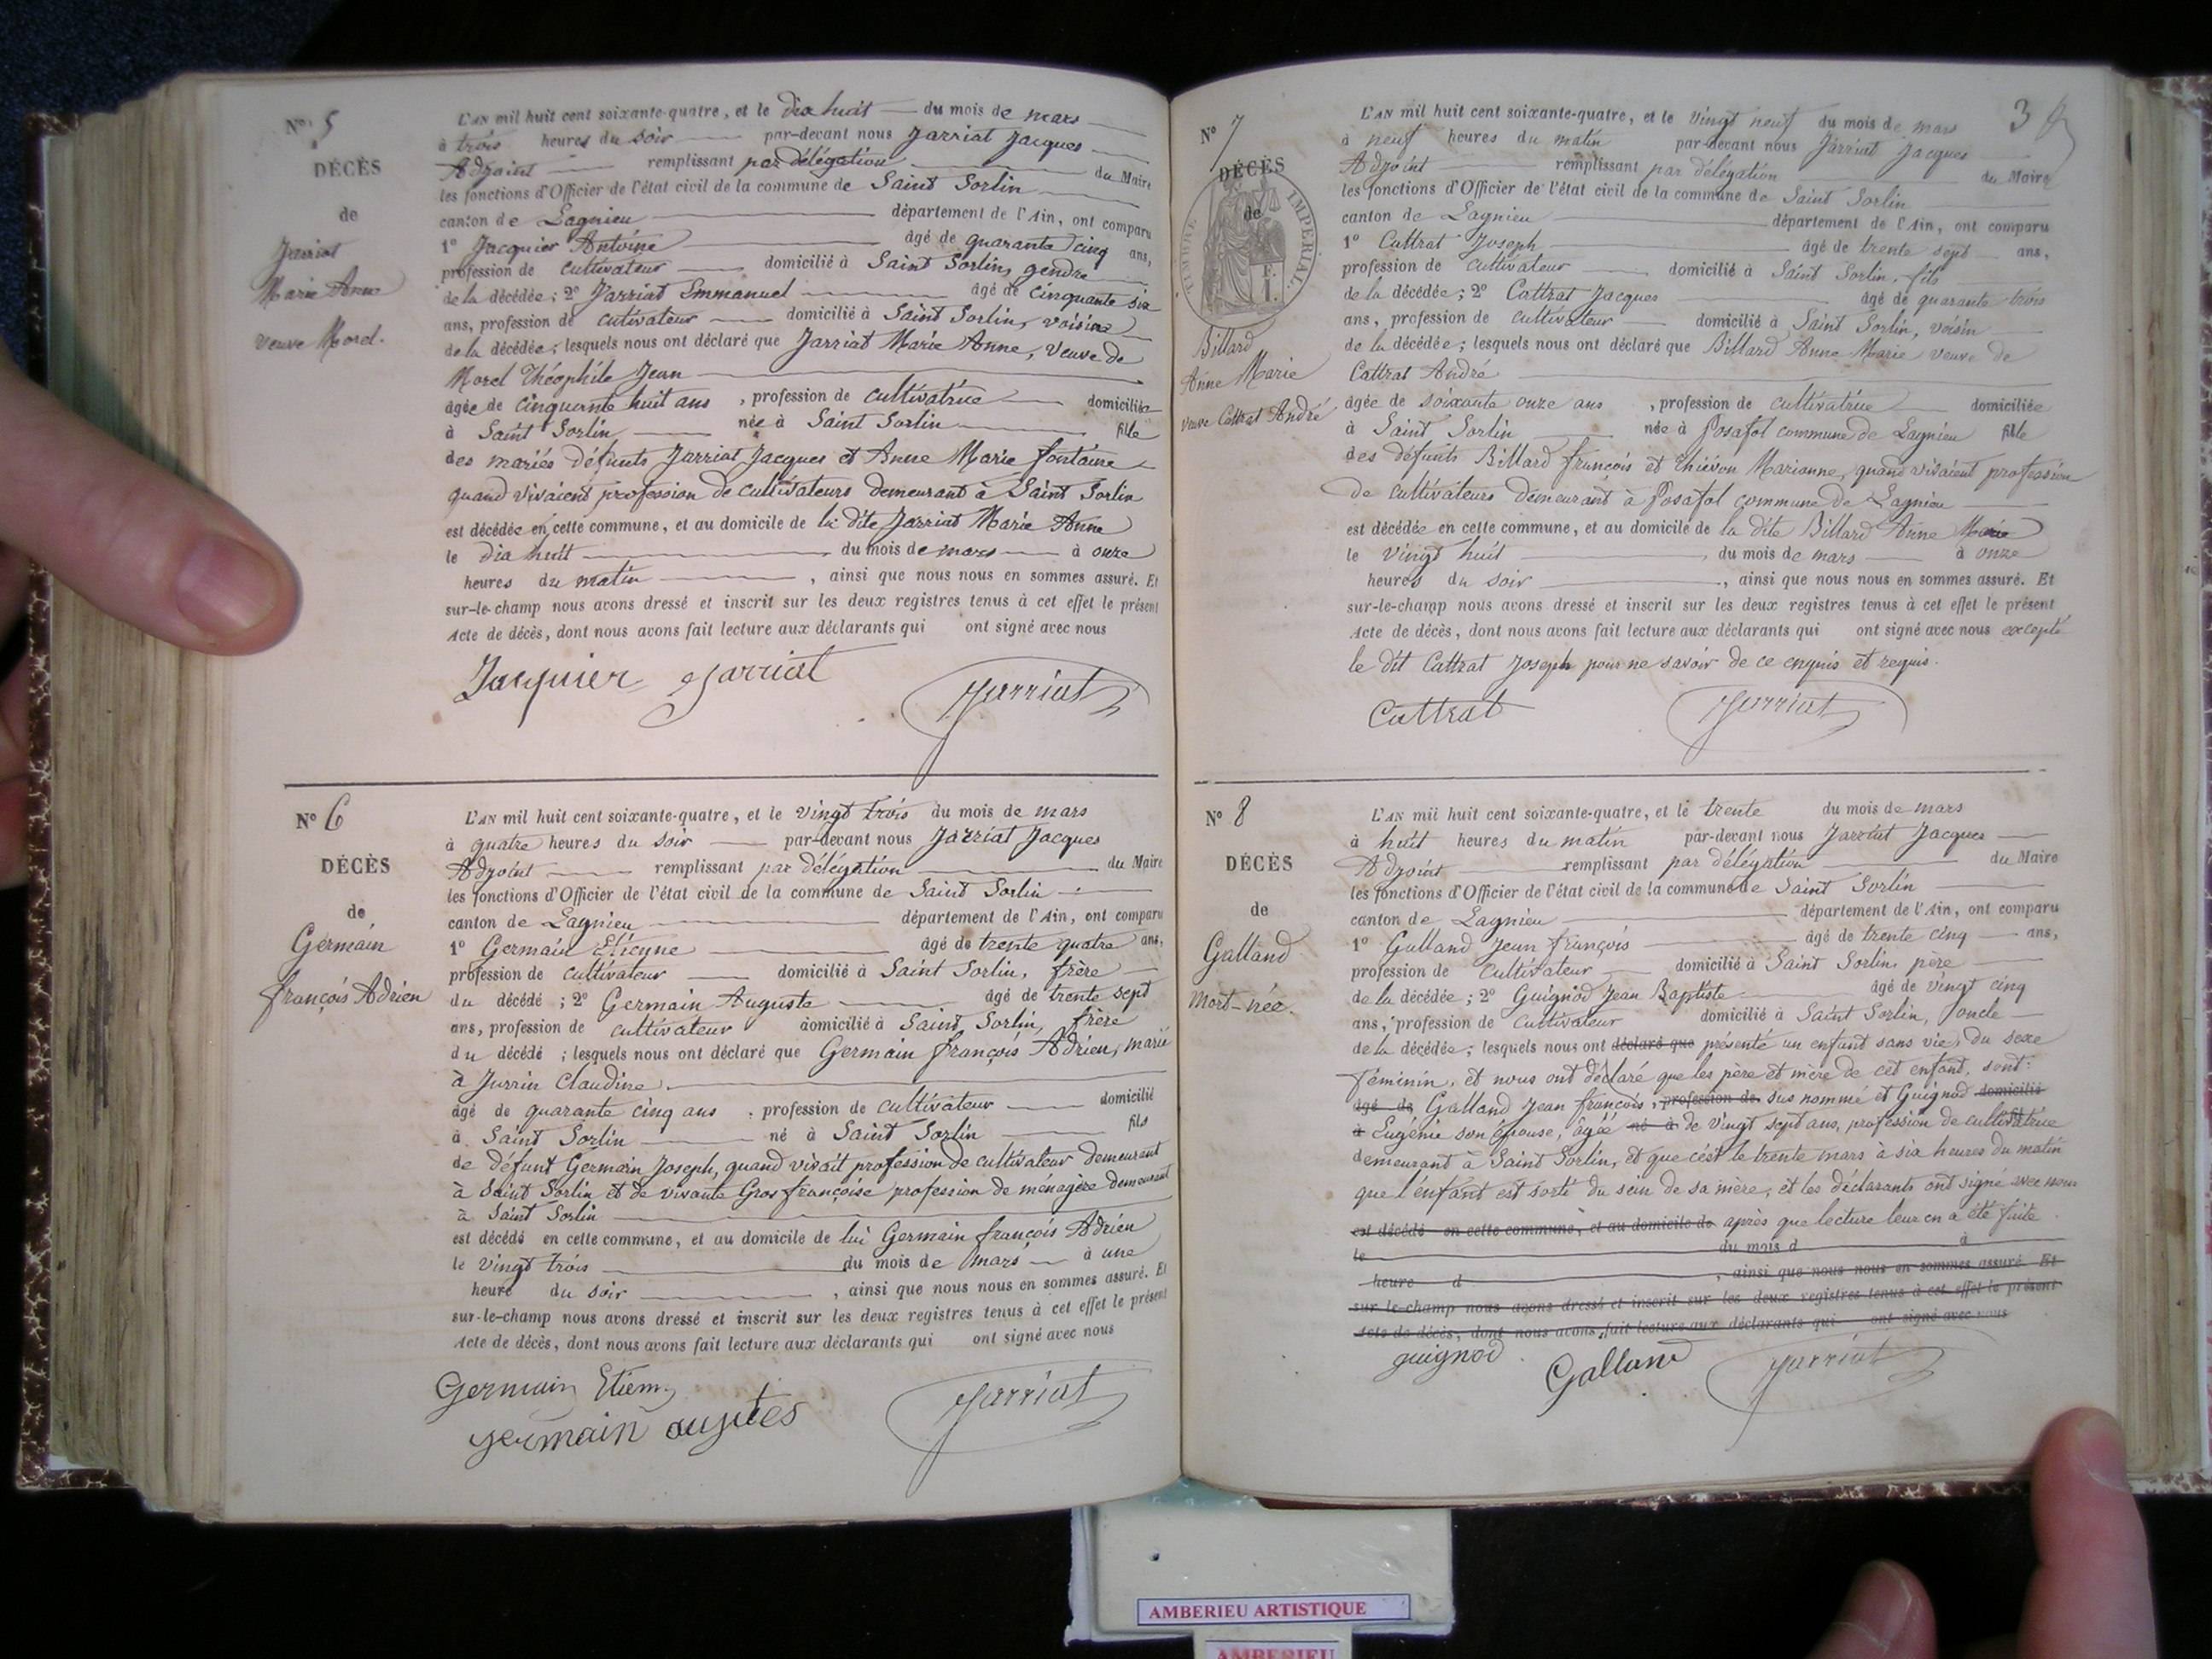 N° 5
DÉCÈS
de
Jarriat
Marie Anne
veuve Morel.
L'AN mil huit cent soixante-quatre, et le dix huit du mois de mars
à trois heures du soir par-devant nous Jarriat Jacques
Adjoint remplissant par délégation du Maire
les fonctions d'Officier de l'état civil de la commune de Saint Sorlin
canton de Lagnieu département de l'Ain, ont comparu
1° Jacquier Antoine âgé de quarante cinq ans,
profession de cultivateur domicilié à Saint Sorlin, gendre
de la décédée; 2° Jarriat Emmanuel âgé de cinquante six
ans, profession de cutivateur domicilié à Saint Sorlin, voisin
de la décédée; lesquels nous ont déclaré que Jarriat Marie Anne, veuve de
Morel Théophile Jean
âgée de cinquante huit ans, profession de cultivatrice domiciliée
à Saint Sorlin née à Saint Sorlin fille
des mariés défunts Jarriat Jacques et Anne Marie fontaine
quand vivaient profession de cultivateurs demeurant à Saint Sorlin
est décédée en cette commune, et au domicile de la dite Jarriat Marie Anne
le dix huit du mois de mars à onze
heures du matin, ainsi que nous nous en sommes assuré. Et
sur-le-champ nous avons dressé et inscrit sur les deux registres tenus à cet effet le présent
Acte de décès, dont nous avons fait lecture aux déclarants qui ont signé avec nous
Jacquier Jarriat Jarriat
N° 6
DÉCÈS
de
Germain
françois Adrien
L'AN mil huit cent soixante-quatre, et le vingt trois du mois de mars
à quatre heures du soir par-devant nous Jarriat Jacques
Adjoint remplissant par délégation du Maire
les fonctions d'Officier de l'état civil de la commune de Saint Sorlin
canton de Lagnieu département de l'Ain, ont comparu
1° Germain Etienne âgé de trente quatre ans,
profession de cultivateur domicilié à Saint Sorlin, frère
du décédé; 2° Germain Auguste âgé de trente sept
ans, profession de cultivateur domicilié à Saint Sorlin, frère
du décédé; lesquels nous ont déclaré que Germain françois Adrien, marié
à Jurrin Claudine
âgé de quarante cinq ans, profession de cultivateur domicilié
à Saint Sorlin né à Saint Sorlin fils
de défunt Germain Joseph, quand vivait profession de cultivateur demeurant
à Saint Sorlin et de vivante Gros françoise profession de ménagère demeurant
à Saint Sorlin
est décédé en cette commune, et au domicile de lui Germain françois Adrien
le vingt trois du mois de mars à une
heure du soir, ainsi que nous nous en sommes assuré. Et
sur-le-champ nous avons dressé et inscrit sur les deux registres tenus à cet effet le présent
Acte de décès, dont nous avons fait lecture aux déclarants qui ont signé avec nous
Germain Etien
germain augutes Jarriat
3
N° 7
DÉCÈS
de
TIMBRE IMPÉRIAL.
Billard
Anne Marie
veuve Cattrat André
L'AN mil huit cent soixante-quatre, et le vingt neuf du mois de mars
à neuf heures du matin par-devant nous Jarriat Jacques
Adjoint remplissant par délégation du Maire
les fonctions d'Officier de l'état civil de la commune de Saint Sorlin
canton de Lagnieu département de l'Ain, ont comparu
1° Cattrat Joseph âgé de trente sept ans,
profession de cultivateur domicilié à Saint Sorlin, fils
de la décédée; 2° Cattrat Jacques âgé de quarante trois
ans, profession de cultivateur domicilié à Saint Sorlin, voisin
de la décédée; lesquels nous ont déclaré que Billard Anne Marie veuve de
Cattrat André
âgée de soixante onze ans, profession de cultivatrice domiciliée
à Saint Sorlin née à Posafol commune de Lagnieu fille
des défunts Billard françois et Thiévon Marianne, quand vivaient profession
de cultivateurs demeurant à Posafol commune de Lagnieu
est décédée en cette commune, et au domicile de la dite Billard Anne Marie
le vingt huit du mois de mars à onze
heures du soir, ainsi que nous nous en sommes assuré. Et
sur-le-champ nous avons dressé et inscrit sur les deux registres tenus à cet effet le présent
Acte de décès, dont nous avons fait lecture aux déclarants qui ont signé avec nous excepté
le dit Cattrat Joseph pour ne savoir de ce enquis et requis.
Cattrat Jarriat
N° 8
DÉCÈS
de
Galland
Mort-née.
L'AN mil huit cent soixante-quatre, et le trente du mois de mars
à huit heures du matin par-devant nous Jarriat Jacques
Adjoint remplissant par délégation du Maire
les fonctions d'Officier de l'état civil de la commune de Saint Sorlin
canton de Lagnieu département de l'Ain, ont comparu
1° Galland Jean françois âgé de trente cinq ans,
profession de cultivateur domicilié à Saint Sorlin, père
de la décédée; 2° Guignod Jean Baptiste âgé de vingt cinq
ans, profession de cultivateur domicilié à Saint Sorlin, oncle
de la décédée; lesquels nous ont déclaré que présenté un enfant sans vie, du sexe
féminin, et nous ont déclaré que les père et mère de cet enfant, sont:
âgé de Galland Jean françois, profession de sus nommé et Guignod domicilié
à Eugénie son épouse, âgée né à de vingt sept ans, profession de cultivatrice
demeurant à Saint Sorlin, et que c'est le trente mars à six heures du matin
que l'enfant est sorti du sein de sa mère, et les déclarants ont signé avec nous
est décédé en cette commune, et au domicile de après que lecture leur en a été faite
le du mois d à
heure d, ainsi que nous nous en sommes assuré. Et
sur-le-champ nous avons dressé et inscrit sur les deux registres tenus à cet effet le présent
acte de décès, dont nous avons fait lecture aux déclarants qui ont signé avec nous
guignod Galland Jarriat
AMBERIEU ARTISTIQUE
AMBERIEU